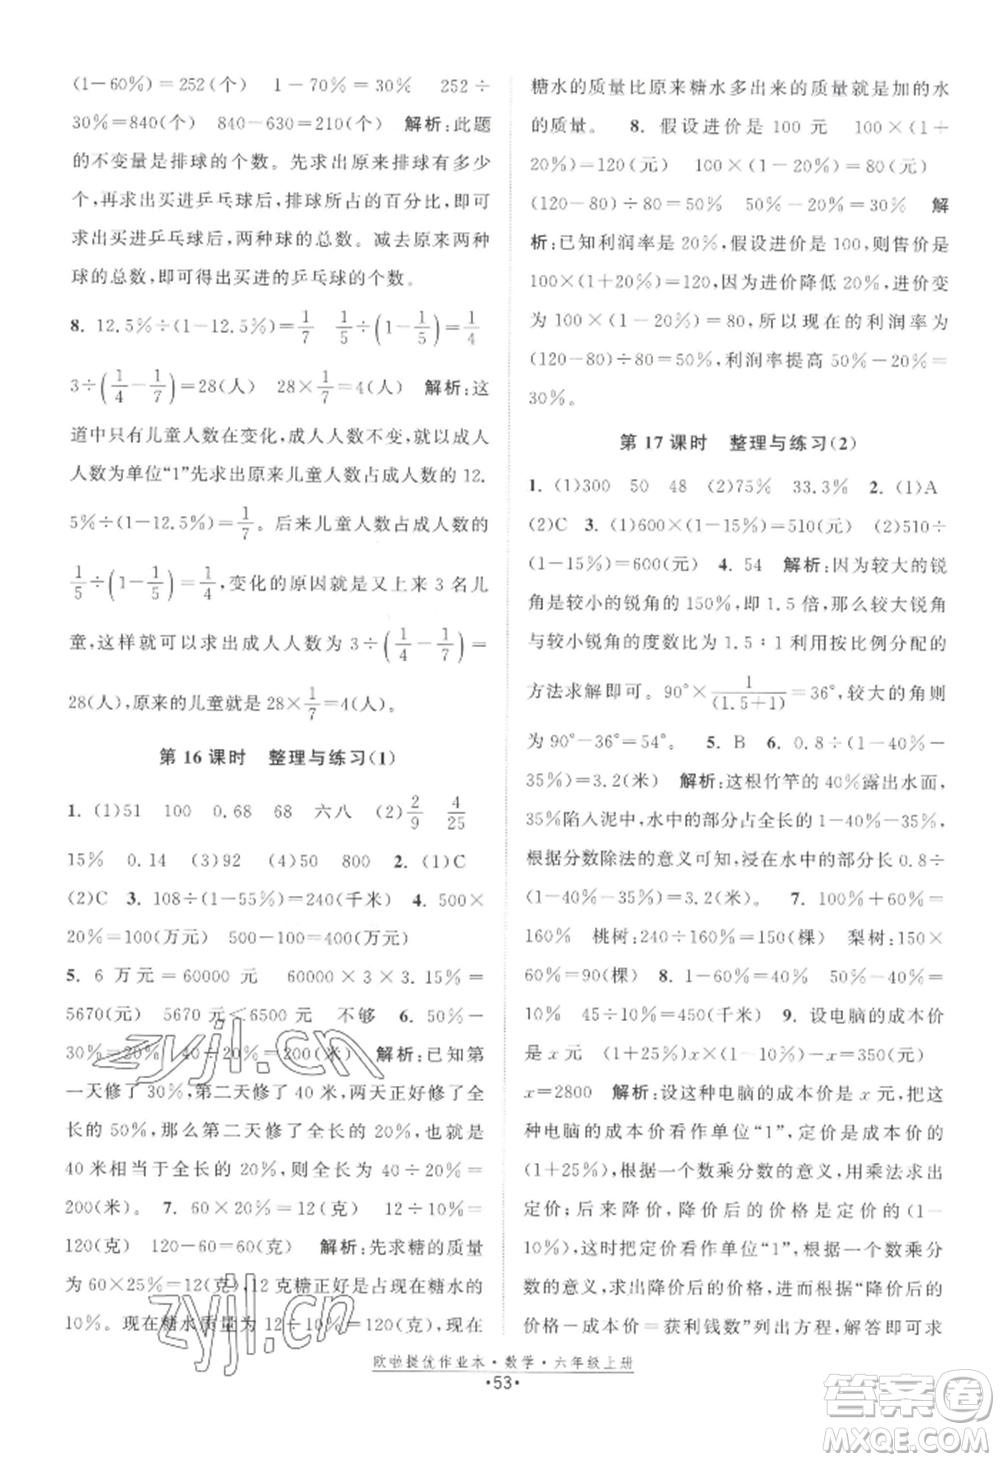 (1-60%)=252(个)　1-70%=30%　252÷
30%=840(个)　840-630=210(个)　解析:此题
的不变量是排球的个数。先求出原来排球有多少
个,再求出买进乒乓球后,排球所占的百分比,即可
求出买进乒乓球后,两种球的总数。减去原来两种
球的总数,即可得出买进的乒乓球的个数。
8. 12.5%÷(1-12.5%)=1/7　1/5÷(1-1/5)=1/4
3÷(1/4-1/7)=28(人)　28×1/7=4(人)　解析:这
道中只有儿童人数在变化,成人人数不变,以成人
人数为单位“1”先求出原来儿童人数占成人数 12.
5%÷(1-12.5%)=1/7。后来儿童人数占成人数的
1/5÷(1-1/5)=1/4,变化的原因就是又上来 3 名儿
童,这样就可以求出成人人数为 3÷(1/4-1/7)=
28(人),原来的儿童就是 28×1/7=4(人)。
第 16 课时　整理与练习(1)
1. (1)51　100　0.68　68　六八　(2)2/9　4/25
15%　0.14　(3)92　(4)50　800　2. (1)C
(2)C　3. 108÷(1-55%)=240(千米)　4. 500×
20%=100(万元)　500-100=400(万元)
5. 6 万元=60000 元　60000×3×3.15%=
5670(元)　5670 元<6500 元　不够　6. 50%-
30%=20%　40÷20%=200(米)　解析:已知第
一天修了 30%,第二天修了 40 米,两天修了全
长的 50%,那么第二天修了全长的 50%-
30%=20%,40 米占全长的 20%,全长是 40÷20%=
200(米)。　7. 60×20%=12(克)　12÷10%=
120(克)　120-60=60(克)　解析:先求糖的质量
为 60×20%=12(克),12 克糖正好是占现在糖水的
10%。现在糖水质量为 12÷10%=120(克),现在
糖水的质量比原来糖水多出来的质量就是加的水
的质量。　8. 假设进价是 100 元　100×(1+
20%)=120(元)　100×(1-20%)=80(元)
(120-80)÷80=50%　50%-20%=30%　解
析:已知利润率是 20%,假设进价是 100,则售价是
100×(1+20%)=120,因为进价降低 20%,进价变
为 100×(1-20%)=80,所以现在的利润率为
(120-80)÷80=50%,利润率提高 50%-20%=
30%。
第 17 课时　整理与练习(2)
1. (1)300　50　48　(2)75%　33.3%　2. (1)A
(2)C　3. (1)600×(1-15%)=510(元)　(2)510÷
(1-15%)=600(元)　4. 54　解析:因为较大的锐
角是较小的锐角的 150%,即 1.5 倍,那么较大锐角
与较小锐角的度数比为 1.5∶1 利用按比例分配的
方法求解即可。90°×1/(1.5+1)=36°,较大的角则
为 90°-36°=54°。　5. B　6. 0.8÷(1-40%-
35%)=3.2(米)　解析:这根竹竿的 40%露出水面,
35%陷入泥中,水中的部分占全长的 1-40%-35%,
根据分数除法的意义可知,浸在水中的部分长 0.8÷
(1-40%-35%)=3.2(米)。　7. 1+60%=
160%　桃树:240÷160%=150(棵)　梨树:150×
60%=90(棵)　8. 1-60%-30%=
10%　45÷10%=450(千米)　9. 设电脑的成本价
是 x 元。　(1+25%)x×(1-10%)-x=350(元)
x=2800　解析:设这种电脑的成本价是 x 元,把这
种电脑的成本价看作单位“1”,定价是成本价的
(1+25%),根据一个数乘分数的意义,用乘法求出
定价;后来,降价 10%,降价后的价格是定价的(1-
10%),这时把定价看作单位“1”,根据一个数乘分
数的意义,求出降价后的价格,进而根据“降价后的
价格-成本价=获利钱数”列出方程,解答即可求
欧啦提优作业本·数学·六年级上册
·53·
zyjl.cn
zyjl.cn
答案圈
MXQE.COM